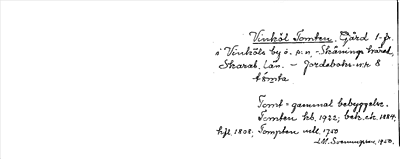 Vinköl Tomten. Gård 1-fr.
i Vinköls by o. s. n. - Skånings härad,
Skarab. län. - Jordeboks-n:r 8
tåmta
Tomt = gammal bebyggelse.
Tomten kb. 1922; bek. ek. 1884;
hfl. 1808; Tompten mtl. 1750
1950.